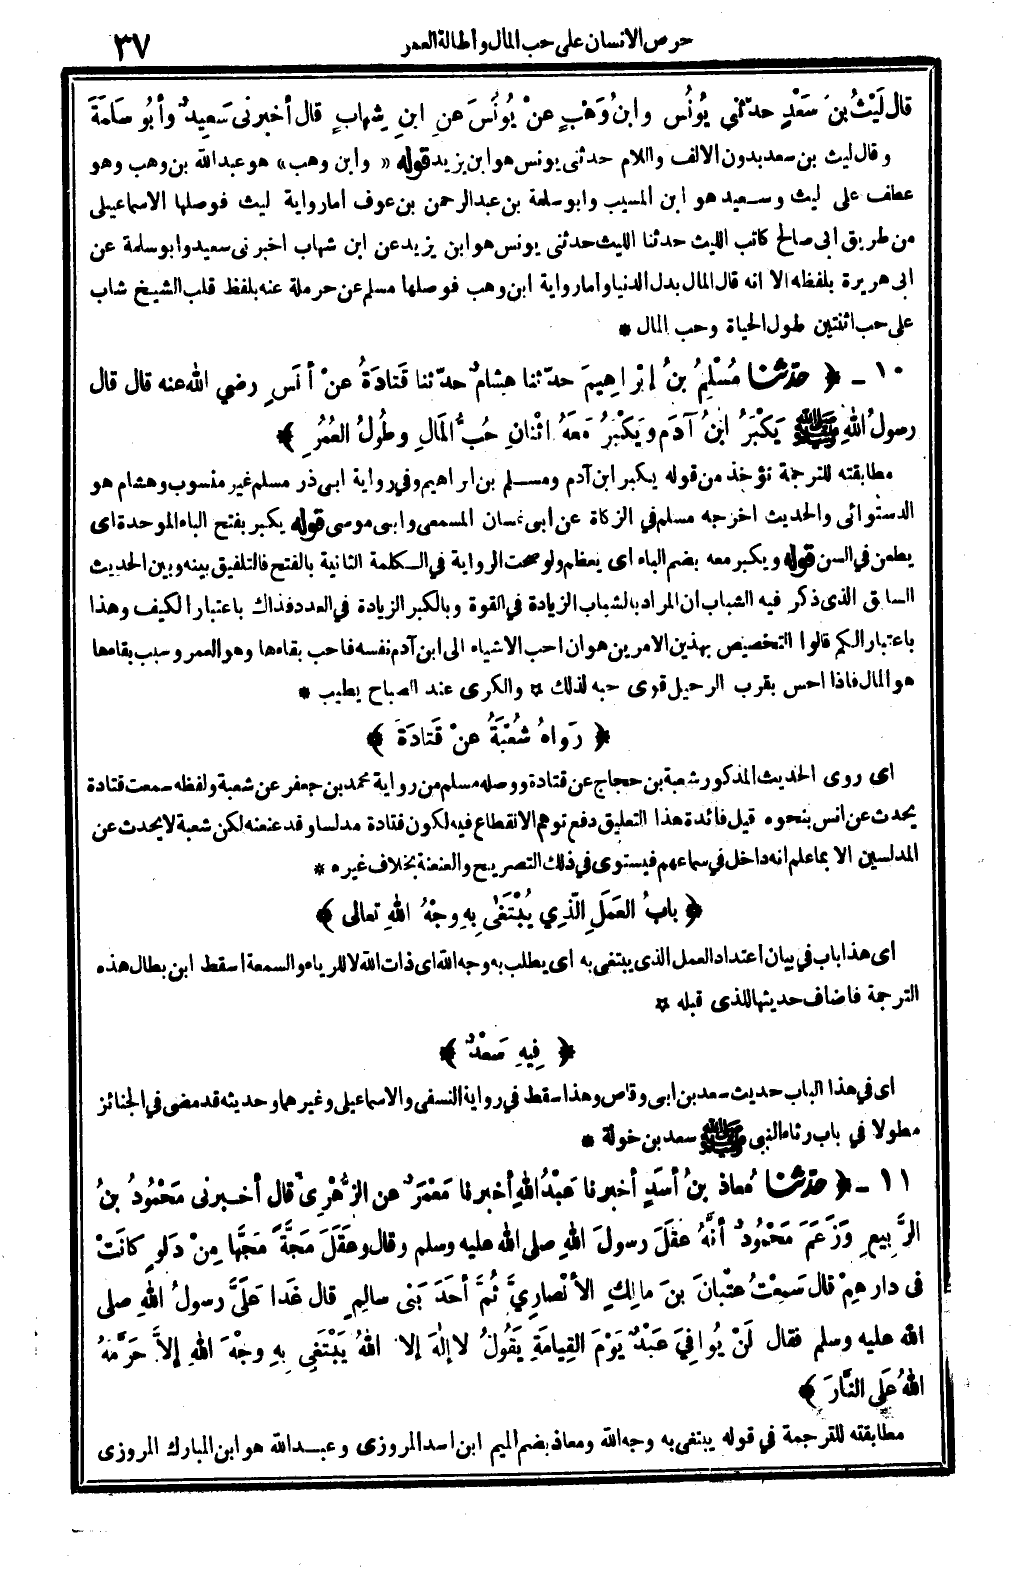 حرص الانسان على حب المال وأطالة العمر
٣٧
قال لَيْثُ بنُ سَعْدٍ حدّثني يُونُسُ وابنُ وَهْبٍ عنْ يُونُسَ عنِ ابنِ شِهابٍ قال أخبرنى سَعِيدٌ وأبُو سَلَمَةَ
وقال ليث بن سعد بدون الالف واللام حدثنى يونس هو ابن يزيد قوله « وابن وهب » هو عبدالله بن وهب وهو
عطف على ليث وسعيد هو ابن المسيب وابو سلمة بن عبدالرحمن بن عوف اما رواية ليث فوصلها الاسماعيلى
من طريق ابى صالح كاتب الليث حدثنا الليث حدثنى يونس هو ابن يزيد عن ابن شهاب اخبرنى سعيد وابو سلمة عن
ابى هريرة بلفظه الا انه قال المال بدل الدنيا واما رواية ابن وهب فوصلها مسلم عن حرملة عنه بلفظ قلب الشيخ شاب
على حب اثنتين طول الحياة وحب المال *
١٠ ـ ﴿ حدّثنا مُسْلِمُ بنُ إبْراهِيمَ حدّثنا هِشامٌ حدّثنا قَتادَةُ عنْ أنَسٍ رضي الله عنه قال قال
رسولُ اللهِ ﷺ يَكْبَرُ ابنُ آدَمَ ويَكْبُرُ مَعَهُ اثْنانِ حُبُّ المَالِ وطُولُ العُمُرِ ﴾
مطابقته للترجمة تؤخذ من قوله يكبر ابن آدم ومسلم بن ابراهيم وفي رواية ابى ذر مسلم غير منسوب وهشام هو
الدستوائى والحديث اخرجه مسلم في الزكاة عن ابى غسان المسمعى وابى موسى قوله يكبر بفتح الباء الموحدة اى
يطعن في السن قوله ويكبر معه بضم الباء اى يعظم ولو صحت الرواية في الكلمة الثانية بالفتح فالتلفيق بينه وبين الحديث
السابق الذى ذكر فيه الشباب ان المراد بالشباب الزيادة في القوة وبالكبر الزيادة في العدد فذاك باعتبار الكيف وهذا
باعتبار الكم قالوا التخصيص بهذين الامرين هو ان احب الاشياء الى ابن آدم نفسه فاحب بقاءها وهو العمر وسبب بقاءها
هو المال فاذا احس بقرب الرحيل قوى حبه لذلك ¤ والكرى عند الصباح يطيب *
﴿ رَواهُ شُعْبَةُ عنْ قَتادَةَ ﴾
اى روى الحديث المذكور شعبة بن حجاج عن قتادة ووصله مسلم من رواية محمد بن جعفر عن شعبة ولفظه سمعت قتادة
يحدث عن انس بنحوه قيل فائدة هذا التعليق دفع توهم الانقطاع فيه لكون قتادة مدلسا وقد عنعنه لكن شعبة لا يحدث عن
المدلسين الا بما علم انه داخل في سماعهم فيستوى في ذلك التصريح والعنعنة بخلاف غيره *
﴿ بابُ العَمَلِ الّذِي يُبْتَغَى بِهِ وجْهُ اللهِ تعالى ﴾
اى هذا باب في بيان اعتداد العمل الذى يبتغى به اى يطلب به وجه الله اى ذات الله لا للرياء والسمعة اسقط ابن بطال هذه
الترجمة فاضاف حديثها للذى قبله ¤
﴿ فِيهِ سَعْدٌ ﴾
اى في هذا الباب حديث سعد بن ابى وقاص وهذا سقط في رواية النسفى والاسماعيلى وغيرهما وحديثه قد مضى في الجنائز
مطولا في باب رثاء النبى ﷺ سعد بن خولة *
١١ ـ ﴿ حدّثنا مُعاذُ بنُ أسَدٍ أخبرنا عَبْدُ اللهِ أخبرنا مَعْمَرٌ عنِ الزُّهْرِىِّ قال أخبرنى مَحْمُودُ بنُ
الرَّبِيعِ وزَعَمَ مَحْمُودٌ أنَّهُ عَقَلَ رسولَ اللهِ صلى الله عليه وسلم وقال وعَقَلَ مَجَّةً مَجَّها مِنْ دَلْوٍ كانَتْ
فى دارِهِمْ قال سَمِعْتُ عِتْبانَ بنَ مالِكٍ الأنْصارِيَّ ثُمَّ أحَدَ بَنى سالِمٍ قال غَدا عَلَىَّ رسولُ اللهِ صلى
الله عليه وسلم فقال لَنْ يُوافِيَ عَبْدٌ يَوْمَ القِيامَةِ يَقُولُ لا إلٰهَ إلاّ اللهُ يَبْتَغِي بِهِ وجْهَ اللهِ إلاَّ حَرَّمَهُ
اللهُ عَلَى النَّارَ ﴾
مطابقته للترجمة في قوله يبتغى به وجه الله ومعاذ بضم الميم ابن اسد المروزى وعبدالله هو ابن المبارك المروزى